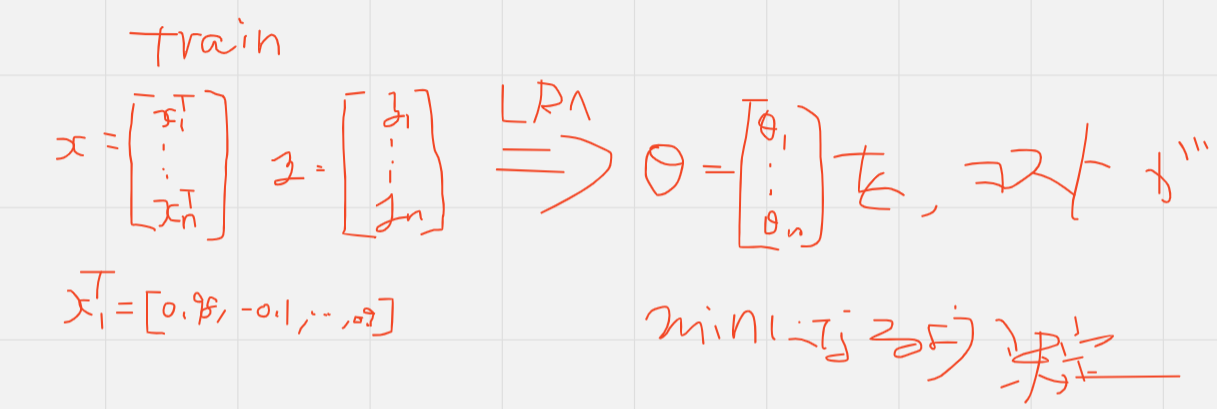 train
x = [x₁ᵀ ⋮ xₙᵀ] y = [y₁ ⋮ yₙ] LRA ⇒ θ = [θ₁ ⋮ θₙ] を, コストが
x₁ᵀ = [0.95, -0.1, ..., 0.9]
minになるように求